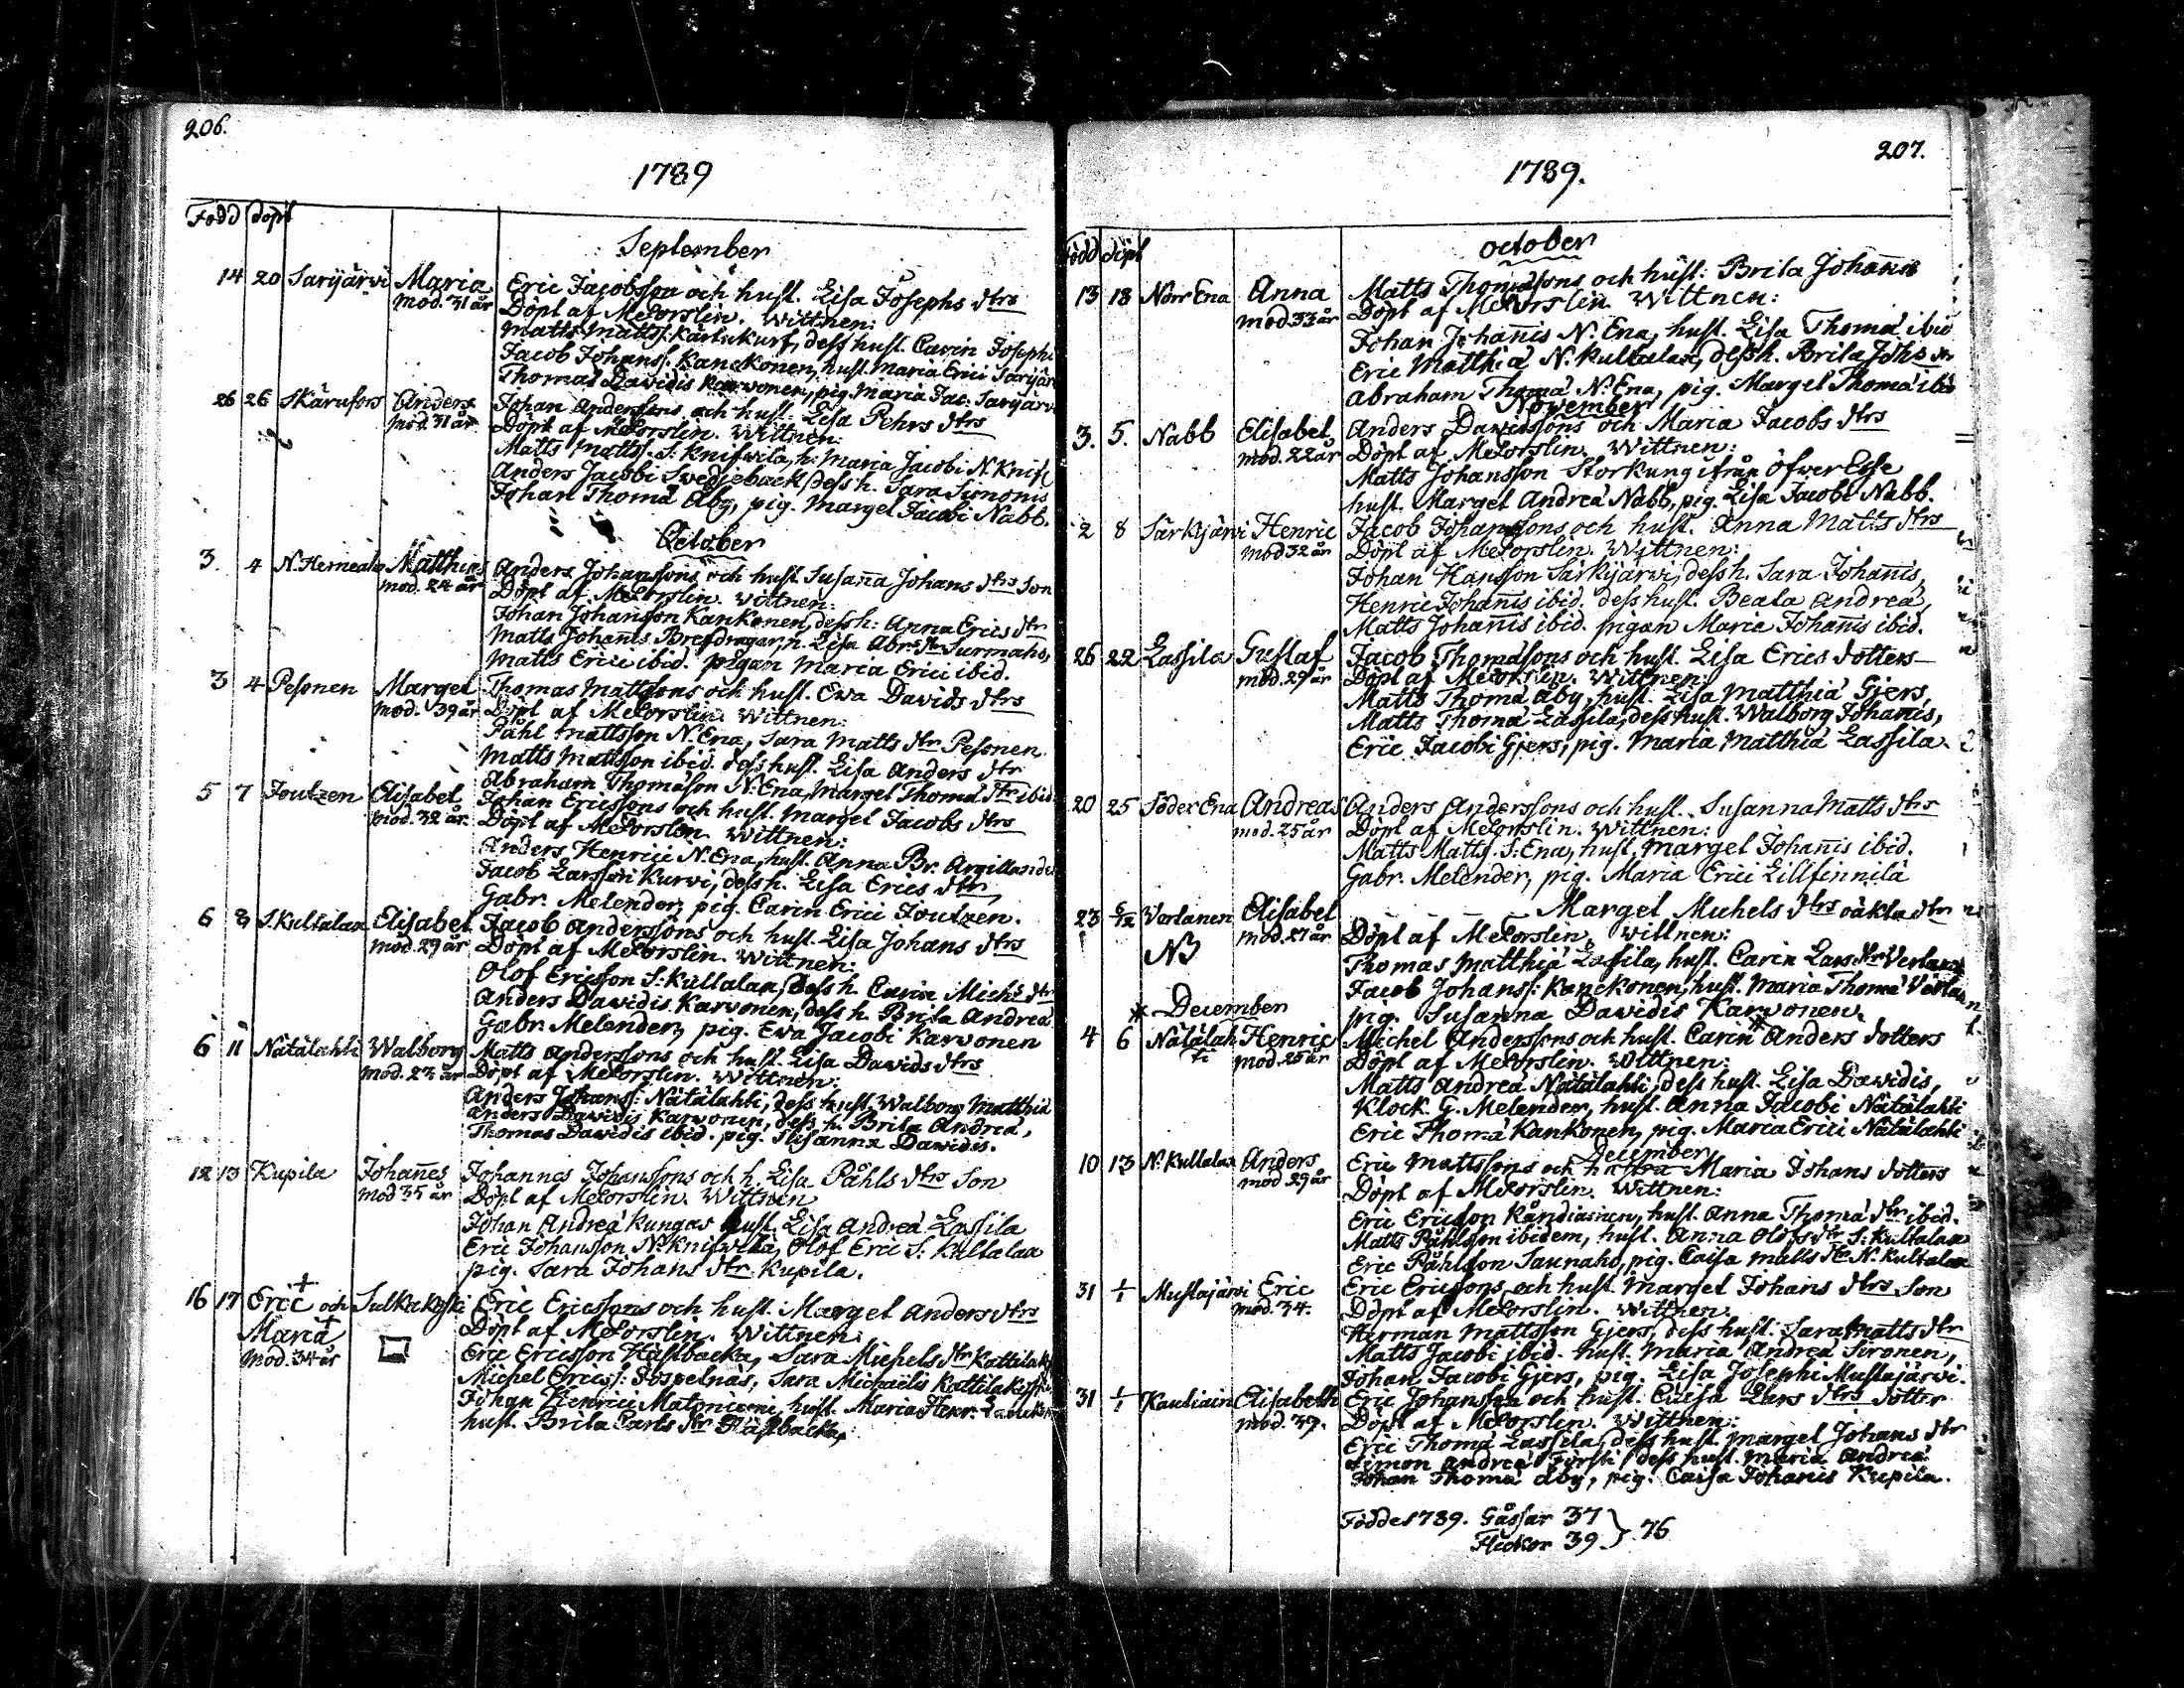 206.
1789
Född döpt
September
14 20 Sarijärvi Maria Eric Jacobsson och hust. Lisa Josephs dtrs
mod. 31 år Döpt af Mc Forslin. Wittnen:
Matts Mattss: Kärtukurf, dess hust. Carin Josephi
Jacob Johanss: Kanckonen, hust. Maria Erici Sarijär
Thomas Davidis Karvonen, pig. Maria Jac. Sarijärv
26 26 Skärufors Anders Johan Anderssons och hust. Lisa Pehrs dtrs
mod. 31 år Döpt af Mc Forslin. Wittnen:
Matts Mattss. S: Knifwila, h: Maria Jacobi N. Knif
Anders Jacobi Swedjeback, dess h. Sara Simonis
Johan Thomæ Åby, pig. Marget Jacobi Nabb.
October
3. 4 N. Herneaho Matthias Anders Johanssons och hust Susaña Johans dtrs Son
mod. 24 år Döpt af Mc Forslin. Wittnen:
Johan Johansson Kankonen, dess h: Anna Erics dtr
Matts Johanis Brefdragar, h. Lisa Abr. dtr Surmaho,
Matts Erici ibid. pigan Maria Erici ibid.
3 4 Pesonen Marget Thomas Mattssons och hust. Ewa Davids dtrs
mod. 39 år Döpt af Mc Forslin. Wittnen:
Påhl Mattsson N. Ena, Sara Matts dtr Pesonen
Matts Mattsson ibid. dess hust. Lisa Anders dtr
Abraham Thomasson N. Ena, Marget Thomæ dtr ibid
5 7 Joutzen Elisabet Johan Ericssons och hust. Marget Jacobs dtrs
mod. 32 år Döpt af Mc Forslin. Wittnen:
Anders Henrici N. Ena, hust. Anna Br. Argillande
Jacob Larsson Kurvi, dess h. Lisa Erics dtr,
Gabr. Melender, pig. Carin Erici Joutzen.
6 8 S. Kultalax Elisabet Jacob Anderssons och hust. Lisa Johans dtrs
mod. 29 år Döpt af Mc Forslin. Wittnen:
Olof Ericsson S. Kultalax, dess h. Carin Michs dtr
Anders Davidis Karvonen, dess h. Brita Andreæ
Gabr. Melender, pig. Ewa Jacobi Karvonen
6 11 Nätälahti Walborg Matts Anderssons och hust. Lisa Davids dtrs
mod. 23 år Döpt af Mc Forslin. Wittnen:
Anders Johanss: Nätälahti, dess hust. Walborg Matthiæ
Anders Davidis Karvonen, dess h. Brita Andreæ,
Thomas Davidis ibid. pig. Susanna Davidis.
12 13 Kupila Johañes Johannes Johanssons och h. Lisa Påhls dtrs Son
mod 35 år Döpt af Mc Forslin. Wittnen
Johan Andreæ Kungas hust. Lisa Andreæ Lassila
Eric Johansson N. Knifwila, Olof Eric S. Kultalax
pig. Sara Johans dtr Kupila.
16 17 Eric + och Sulkakoski Eric Ericssons och hust. Marget Anders dtrs
Maria + Döpt af Mc Forslin. Wittnen:
Mod. 34 år Eric Ericsson Hästbacka, Sara Michels dtr Kattilak
Michel Ericss: Dospelnäs, Sara Michaelis Kattilakoski
Johan Henrici Matoniemi, hust. Maria Henr.
hust. Brita Carls dtr Hästbacka,
207.
1789.
Född döpt
October
13 18 Norr Ena Anna Matts Thomassons och hust: Brita Johañis
mod 33 år Döpt af Mc Forslin. Wittnen:
Johan Johañis N. Ena, hust. Lisa Thomæ ibid
Eric Matthiæ N. Kultalax, dess h. Brita Johs dr
Abraham Thomæ N. Ena, pig. Marget Thomæ ibid
November
3. 5. Nabb Elisabet Anders Davidssons och Maria Jacobs dtrs
mod. 22 år Döpt af Mc Forslin. Wittnen:
Matts Johansson Storkung ifrån Öfver Esse
hust. Marget Andreæ Nabb, pig. Lisa Jacobi Nabb.
2 8 Särkijärvi Henric Jacob Johanssons och hust. Anna Matts dtrs
mod 32 år Döpt af Mc Forslin. Wittnen:
Johan Hansson Särkijärvi, dess h. Sara Johañis,
Henric Johañis ibid. dess hust. Beata Andreæ,
Matts Johañis ibid. pigan Maria Johañis ibid.
26 22 Lassila Gustaf Jacob Thomassons och hust. Lisa Erics dotters
mod. 29 år Döpt af Mc Forslin. Wittnen:
Matts Thomæ Åby, hust. Lisa Matthiæ Gjers,
Matts Thomæ Lassila, dess hust. Walborg Johañis,
Eric Jacobi Gjers, pig. Maria Matthiæ Lassila.
20 25 Söder Ena Andreas Anders Anderssons och hust. Susanna Matts dtrs
mod. 25 år Döpt af Mc Forslin. Wittnen:
Matts Matts. S: Ena, hust. Marget Johañis ibid.
Gabr. Melender, pig. Maria Erici Lillfinnilä
23 6/12 Verlanen Elisabet — — — Marget Michels dtrs oäkta dtr
NB mod. 27 år Döpt af Mc Forslin. Wittnen:
Thomas Matthiæ Lassila, hust. Carin Lars dtr Verlanen
Jacob Johanss: Kanckonen, hust. Maria Thomæ Verlanen
pig. Susanna Davidis Karvonen.
* December
4 6 Nätälahti Henric Michel Anderssons och hust. Carin Anders dotters
mod. 25 år Döpt af Mc Forslin. Wittnen:
Matts Andreæ Nätälahti, dess hust. Lisa Davidis,
Klock. G. Melender, hust. Anna Jacobi Nätälahti
Eric Thomæ Kankonen, pig. Maria Erici Nätälahti
December
10 13 N. Kultalax Anders Eric Mattssons och h Maria Johans dotters
mod 29 år Döpt af Mc Forslin. Wittnen:
Eric Ericsson Kåndiainen, hust. Anna Thomæ dtr ibid.
Matts Påhlsson ibidem, hust. Anna Olofs dtr S: Kultalax
Eric Påhlsson Saunaho, pig. Caisa Matts dtr N. Kultalax
31 1/1 Mustajärvi Eric Eric Ericssons och hust. Marget Johans dtrs Son
mod. 34. Döpt af Mc Forslin. Wittnen.
Herman Mattsson Gjers, dess hust. Sara Matts dtr
Matts Jacobi ibid. hust. Maria Andreæ Sironen,
Johan Jacobi Gjers, pig. Lisa Josephi Mustajärvi.
31 1/1 Kautiain Elisabeth Eric Johansson och hust. Caisa Lars dtrs dotter
mod. 39. Döpt af Mc Forslin. Wittnen:
Eric Thomæ Lassila, dess hust. Marget Johans dtr
Simon Andreæ Forsti, dess hust. Maria Andreæ
Johan Thomæ Åby, pig. Caisa Johanis Kupila.
Födde 1789. Gåssar 37
Flickor 39 } 76